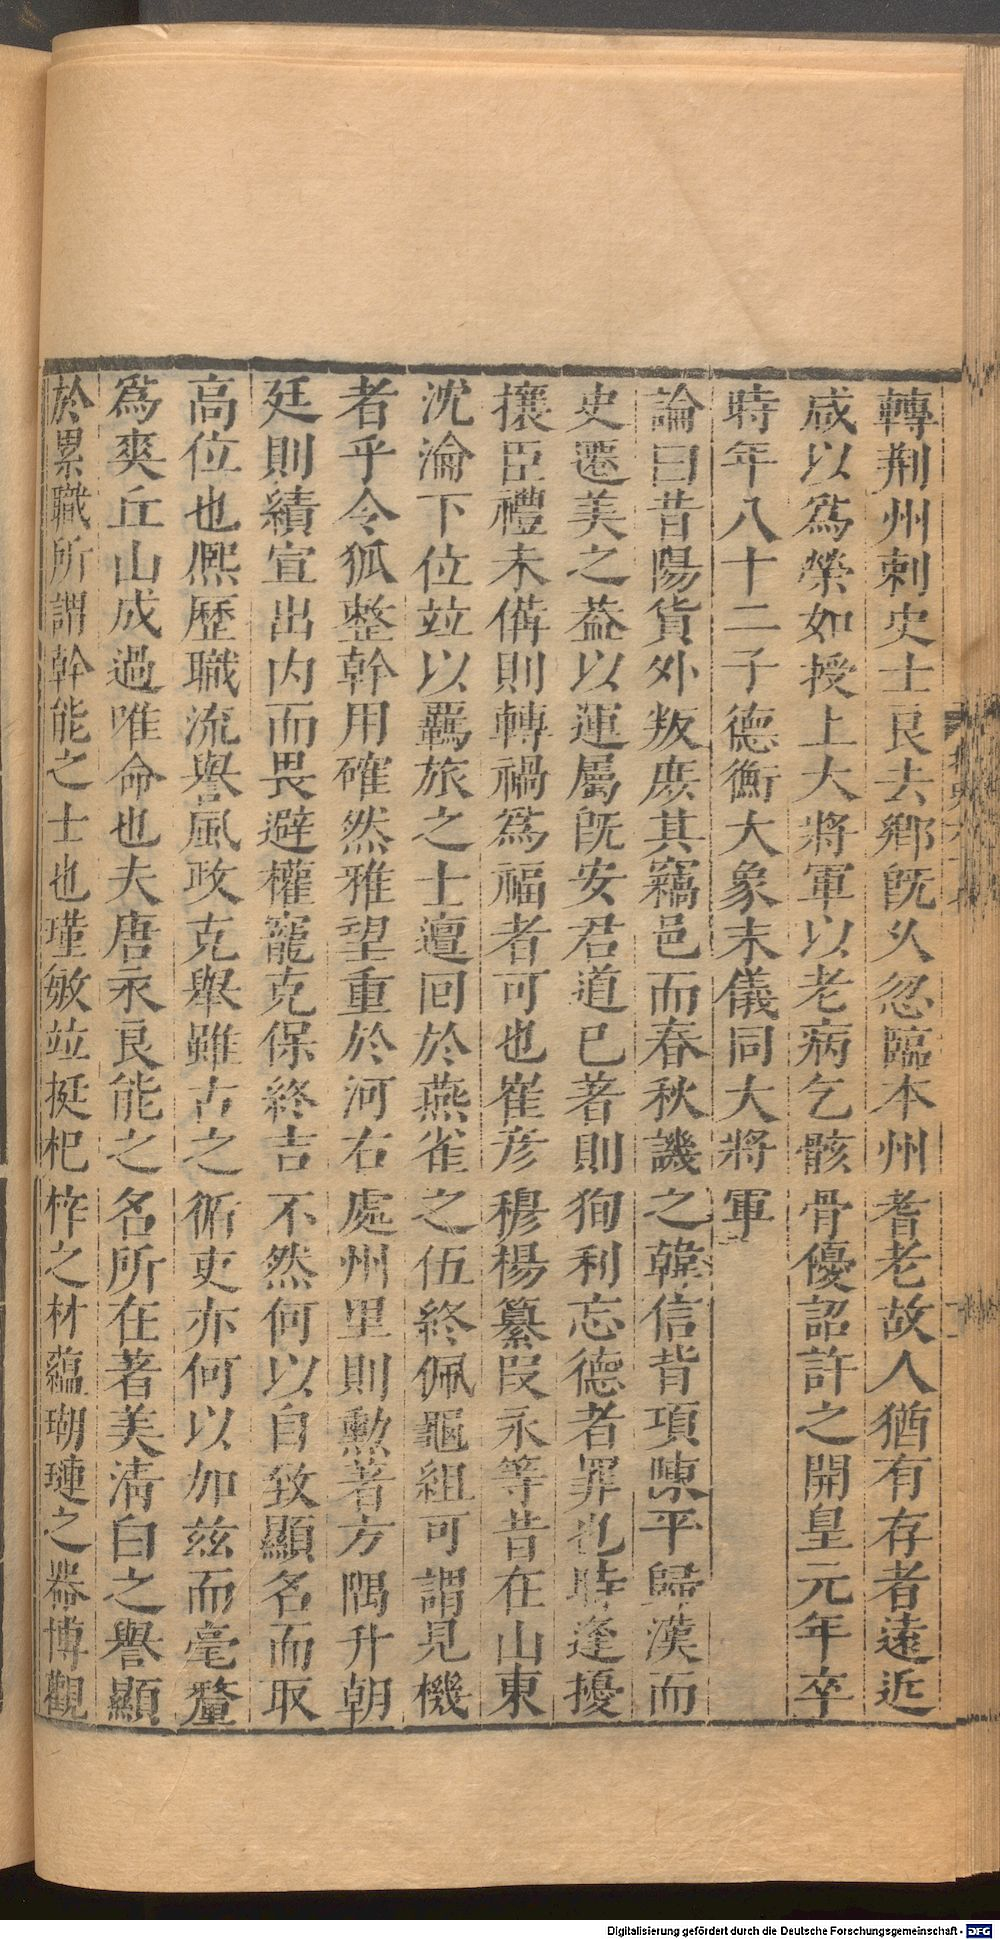 轉荆州刺史士良去鄉旣久忽臨本州耆老故人猶有存者遠近
咸以爲榮如授上大將軍以老病乞骸骨優詔許之開皇元年卒
時年八十二子德衡大象末儀同大將軍
論曰昔陽貨外叛庶其竊邑而春秋譏之韓信背項陳平歸漢而
史遷美之葢以運屬旣安君道已著則狥利忘德者罪也時逢擾
攘臣禮未備則轉禍爲福者可也崔彦穆楊纂叚永等昔在山東
沈淪下位竝以羈旅之士邅回於燕雀之伍終佩龜組可謂見機
者乎令狐整幹用確然雅望重於河右處州里則勲著方隅升朝
廷則績宣出内而畏避權寵克保終吉不然何以自致顯名而取
高位也熈歷職流譽風政克舉雖古之循吏亦何以加兹而毫釐
爲爽丘山成過唯命也夫唐永良能之名所在著美淸白之譽顯
於累職所謂幹能之士也瑾敏竝挺杞梓之材蘊瑚璉之器博觀
Digitalisierung gefördert durch die Deutsche Forschungsgemeinschaft - DFG